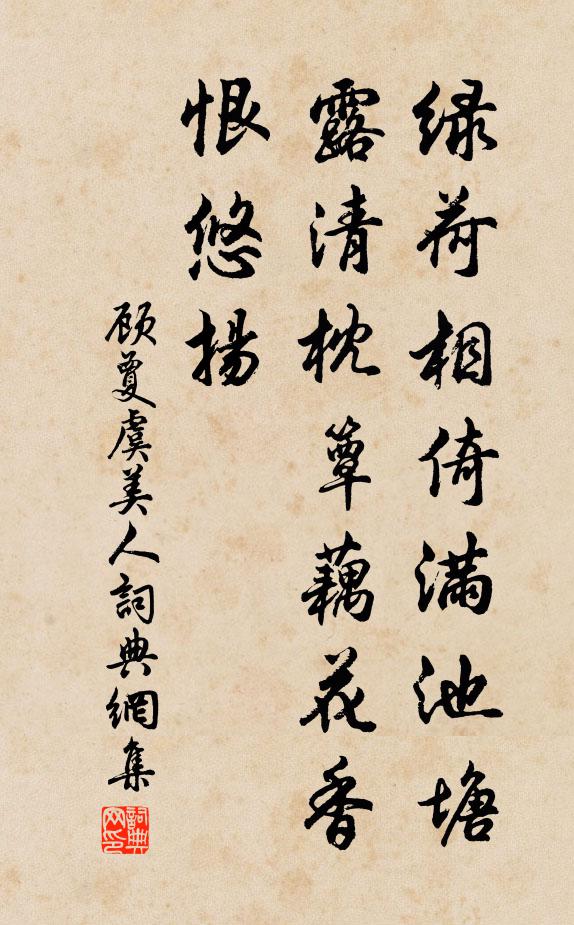 绿荷相倚满池塘
露清枕簟藕花香
恨悠扬
顾夐虞美人詞典網集
詞典网印